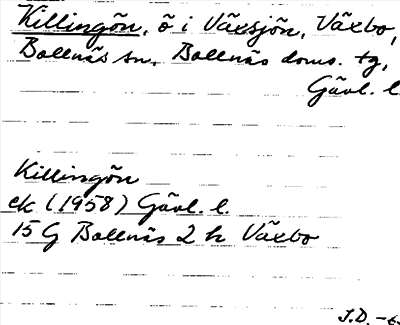 Killingön, ö i Växsjön, Växbo,
Bollnäs sn. Bollnäs doms. tg,
Gävl. l.
Killingön
ek (1958) Gävl. l.
15 G Bollnäs 2 h Växbo
J.D. -6